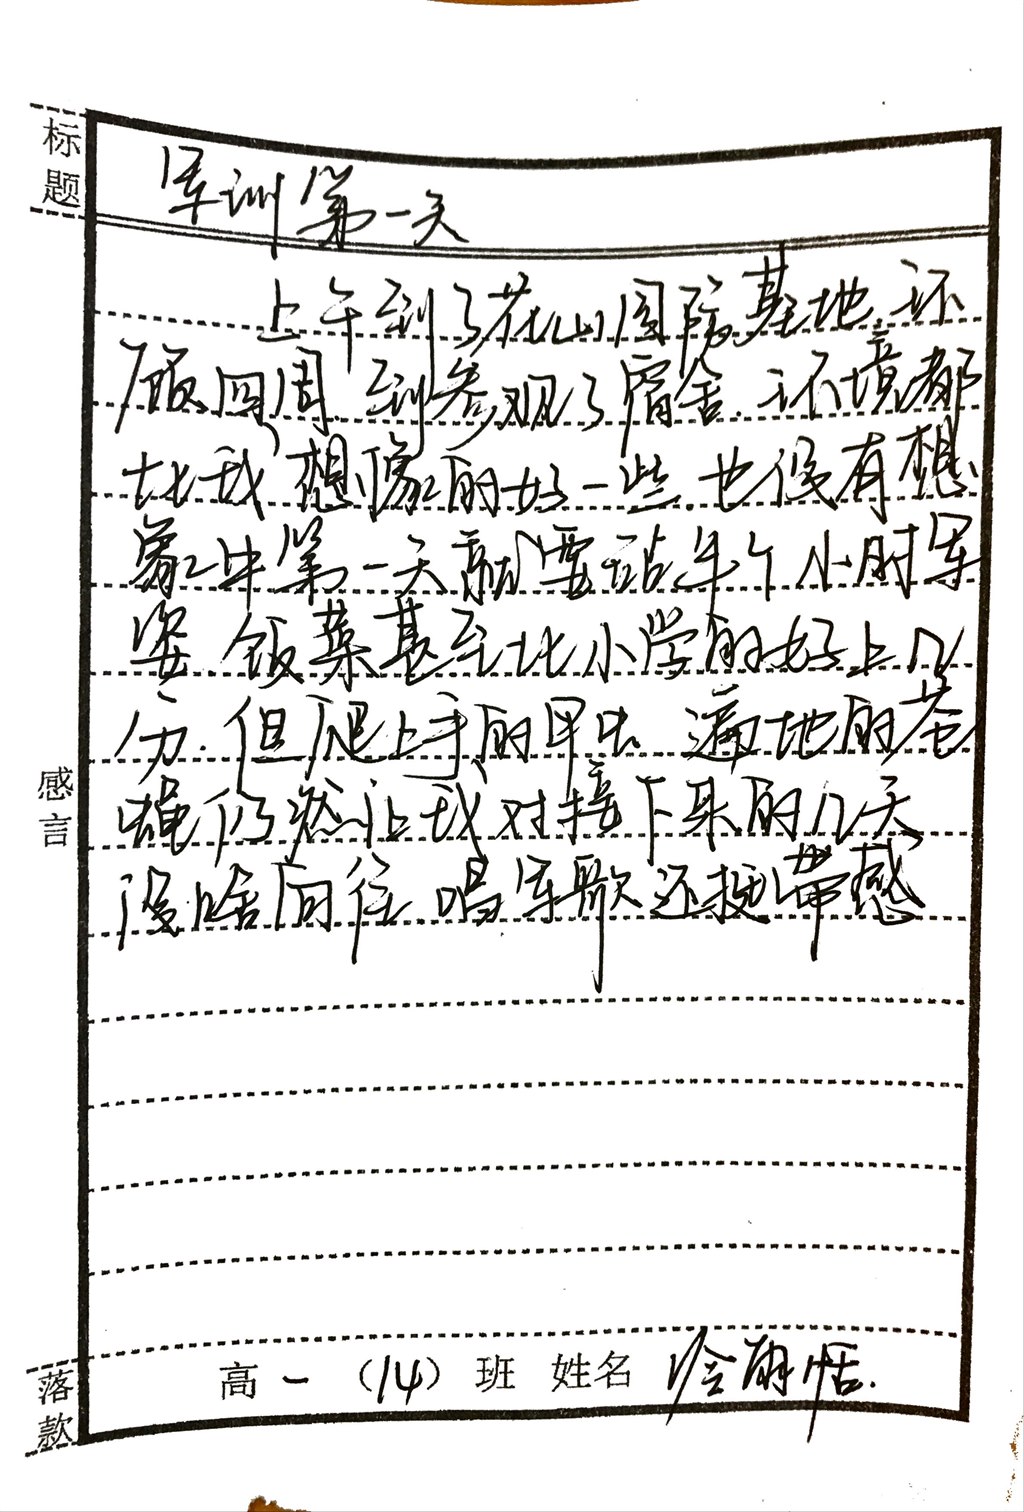 标题
军训第一天
上午到了花山国防基地,环
顾四周,到参观了宿舍.环境都
比我想像的好一些.也没有想
象中第一天就要站半个小时军
姿 饭菜甚至比小学的好上几
分.但爬上手的甲虫 遍地的苍
蝇仍然让我对接下来的几天
没啥向往 唱军歌还挺带感
感言
落款
高一(14)班 姓名 冷雨恬.